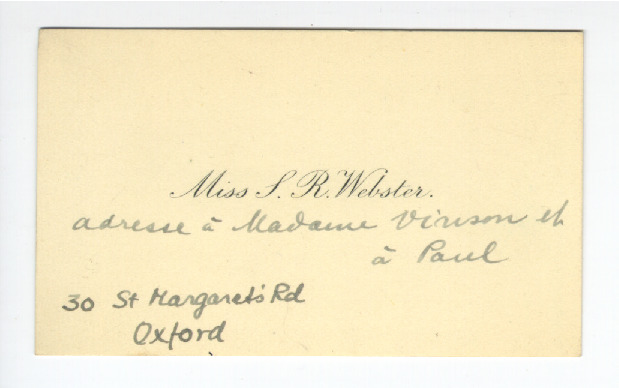 Miss S. R. Webster.
adresse à Madame Vinson et
à Paul
30 St Margaret's Rd
Oxford